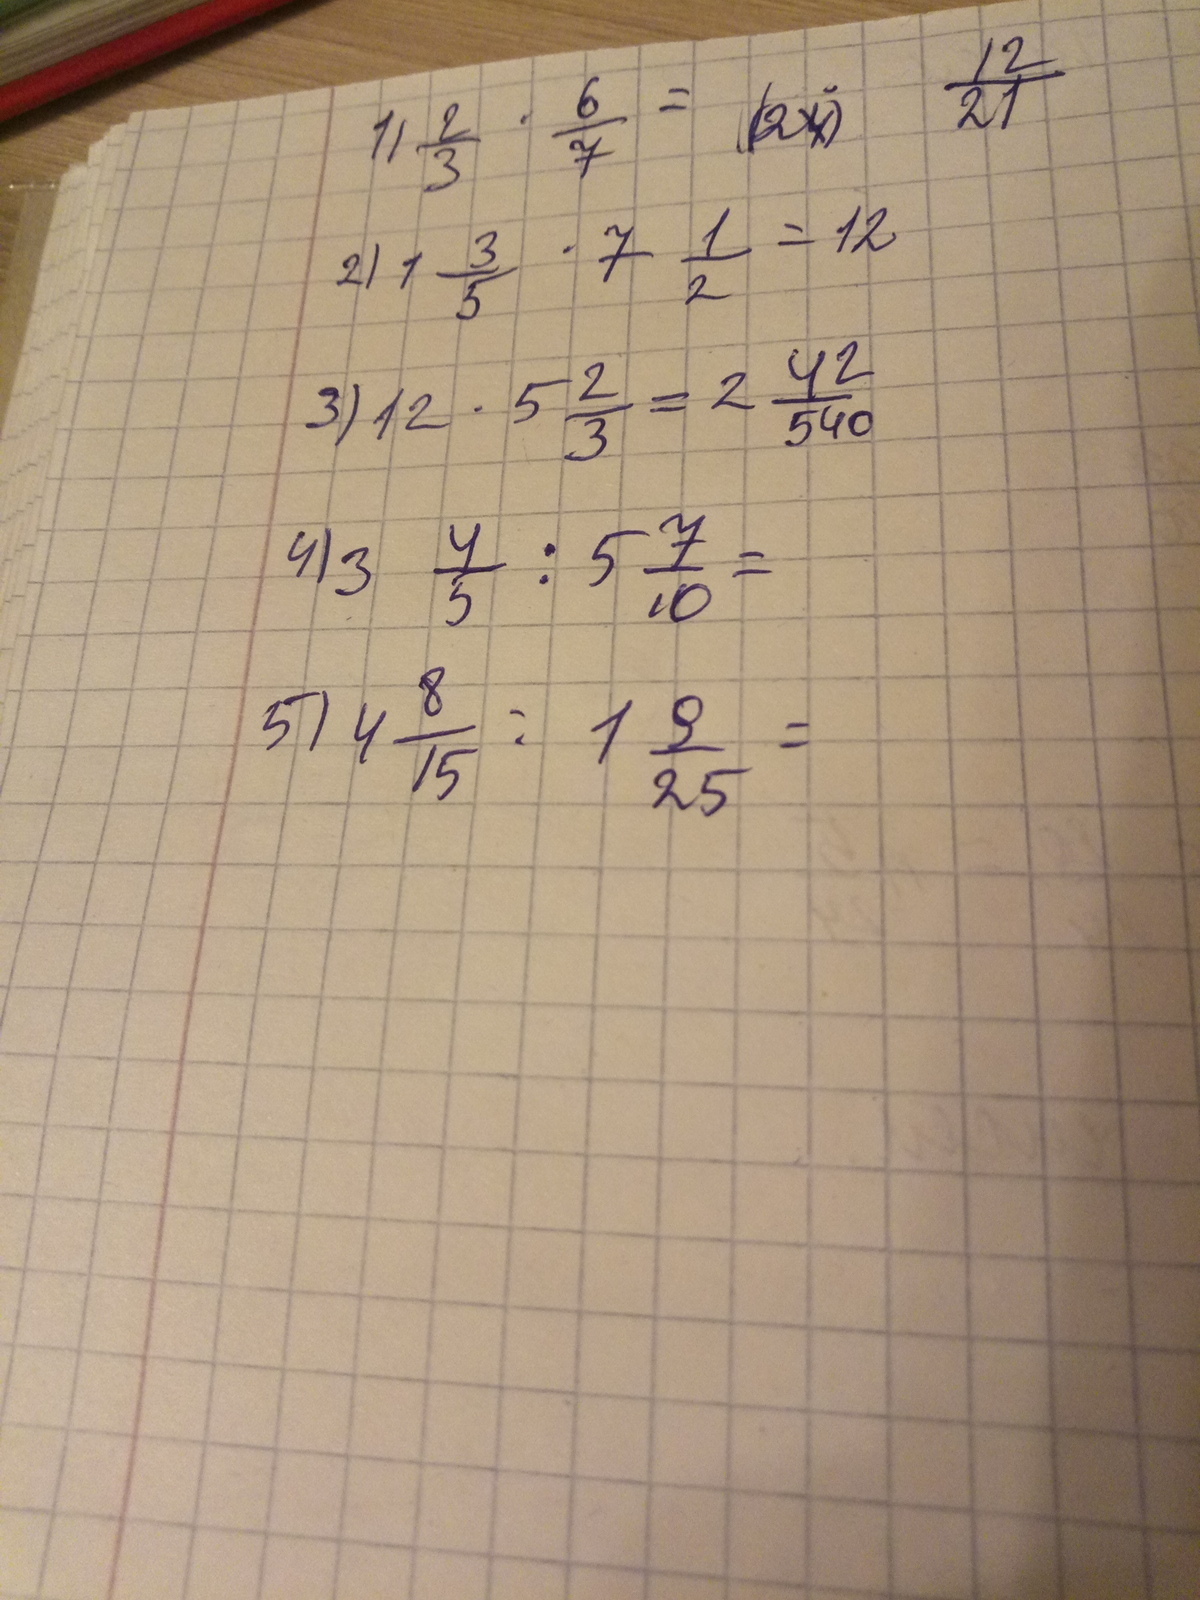 1) 2/3 · 6/7 = 12/21
2) 1 3/5 · 7 1/2 = 12
3) 12 · 5 2/3 = 2 42/540
4) 3 4/5 : 5 7/10 =
5) 4 8/15 : 1 9/25 =